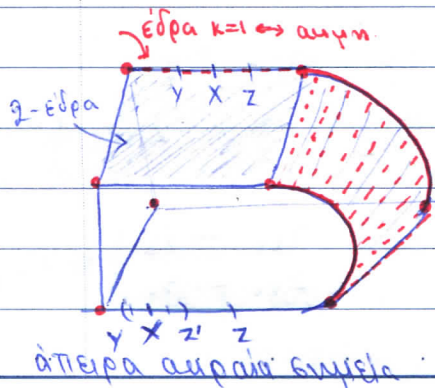 έδρα κ=1 ↔ ακμή
Y X Z
2-έδρα
Y X Z' Z
άπειρα ακραία σημεία